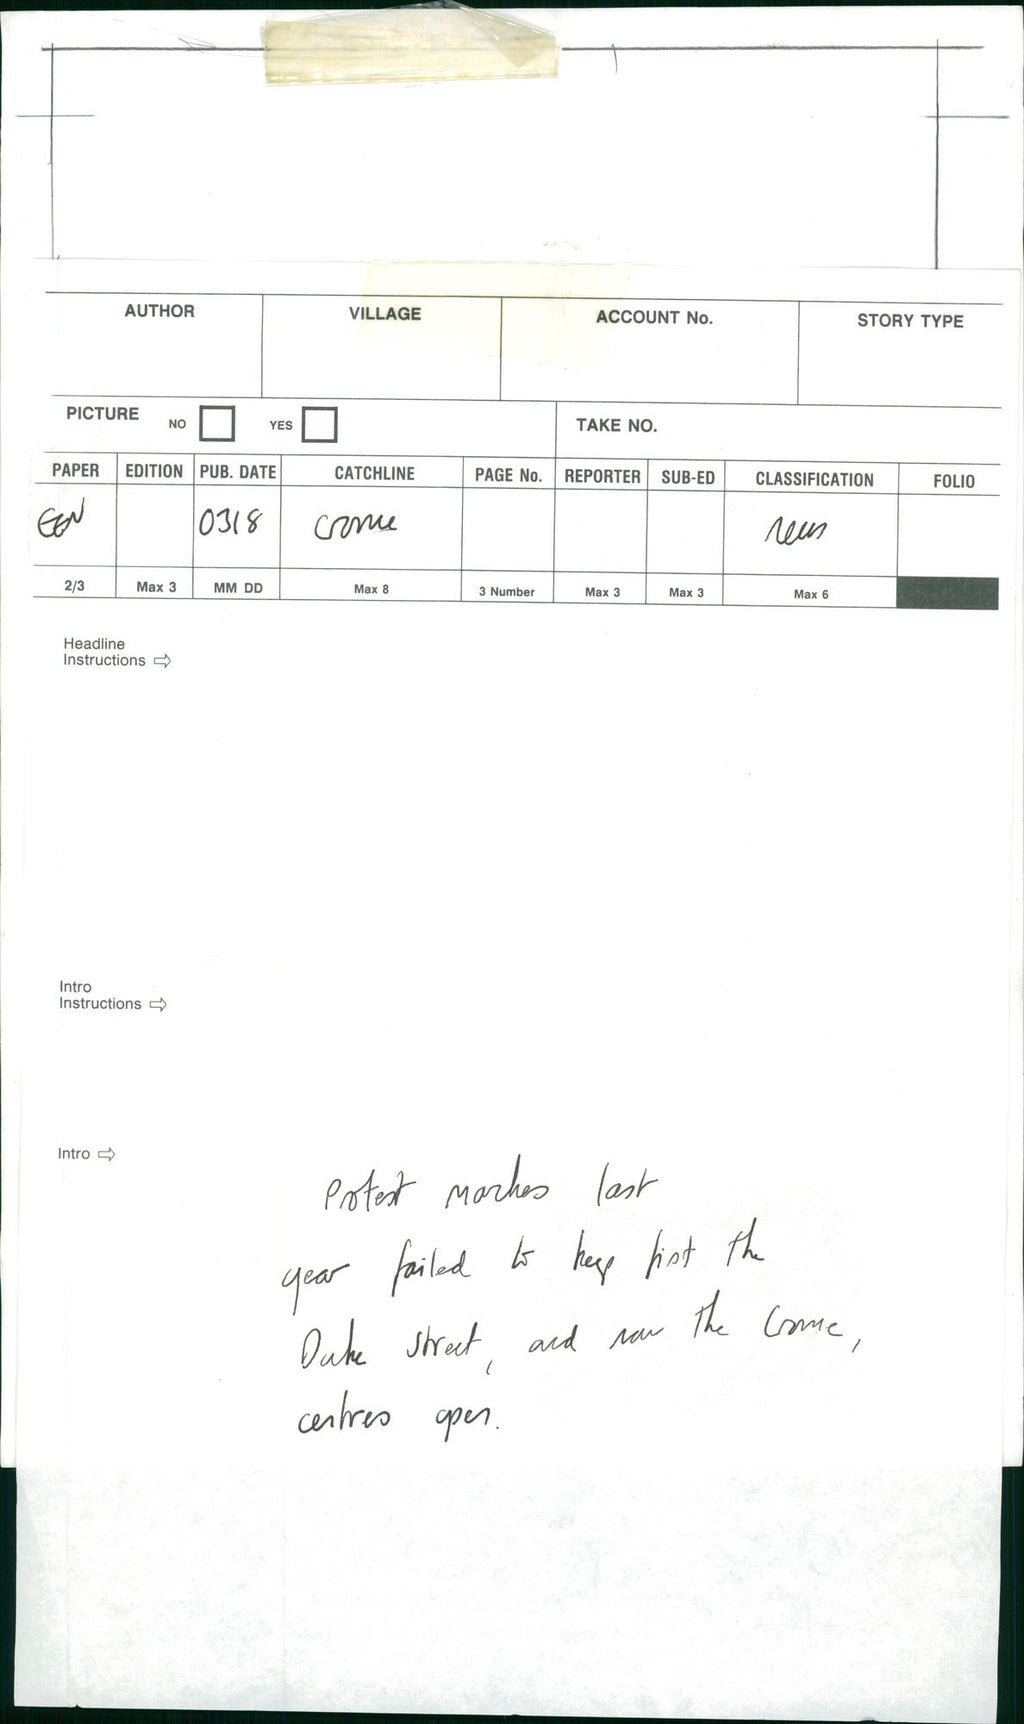 AUTHOR VILLAGE ACCOUNT No. STORY TYPE
PICTURE NO YES TAKE NO.
PAPER EDITION PUB. DATE CATCHLINE PAGE No. REPORTER SUB-ED CLASSIFICATION FOLIO
EEN 0318 Crome news
2/3 Max 3 MM DD Max 8 3 Number Max 3 Max 3 Max 6
Headline
Instructions ⇨
Intro
Instructions ⇨
Intro ⇨
Protest marches last
year failed to keep first the
Duke Street, and now the Crome,
centres open.